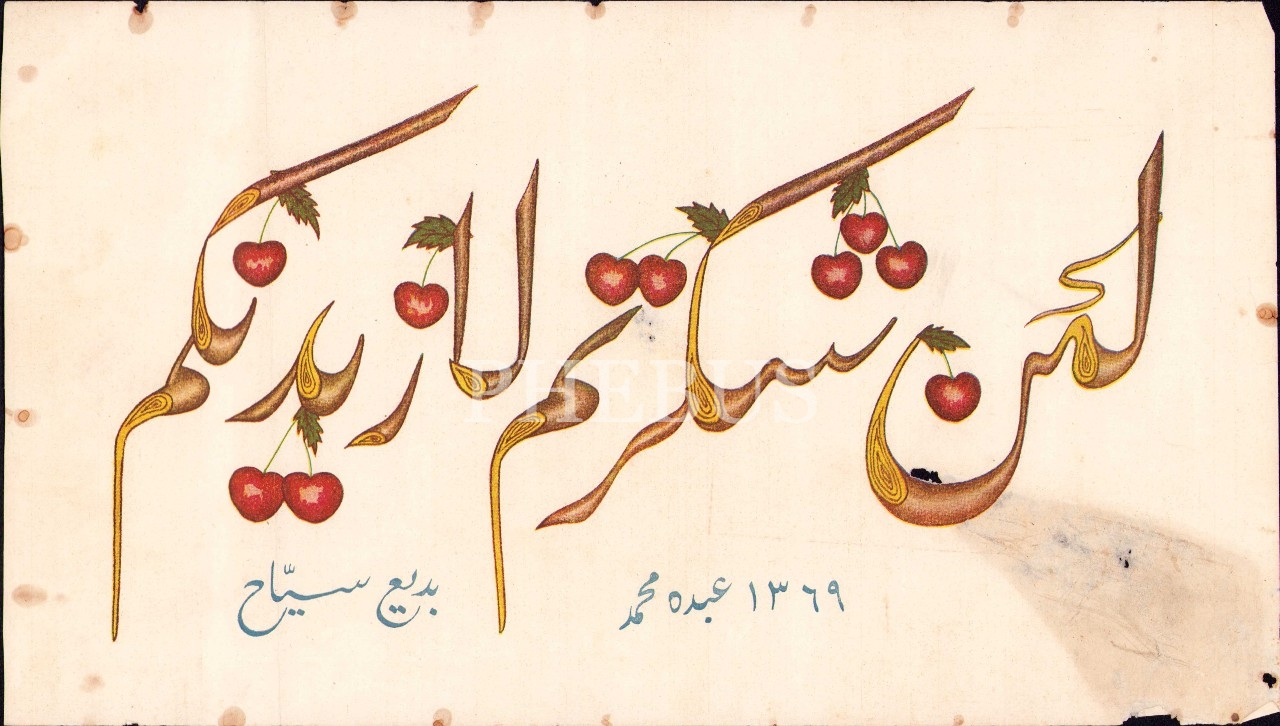 لئن شكرتم لازيدنكم
١٣٦٩ عبده محمد
بديع سيّاح
PHEBUS